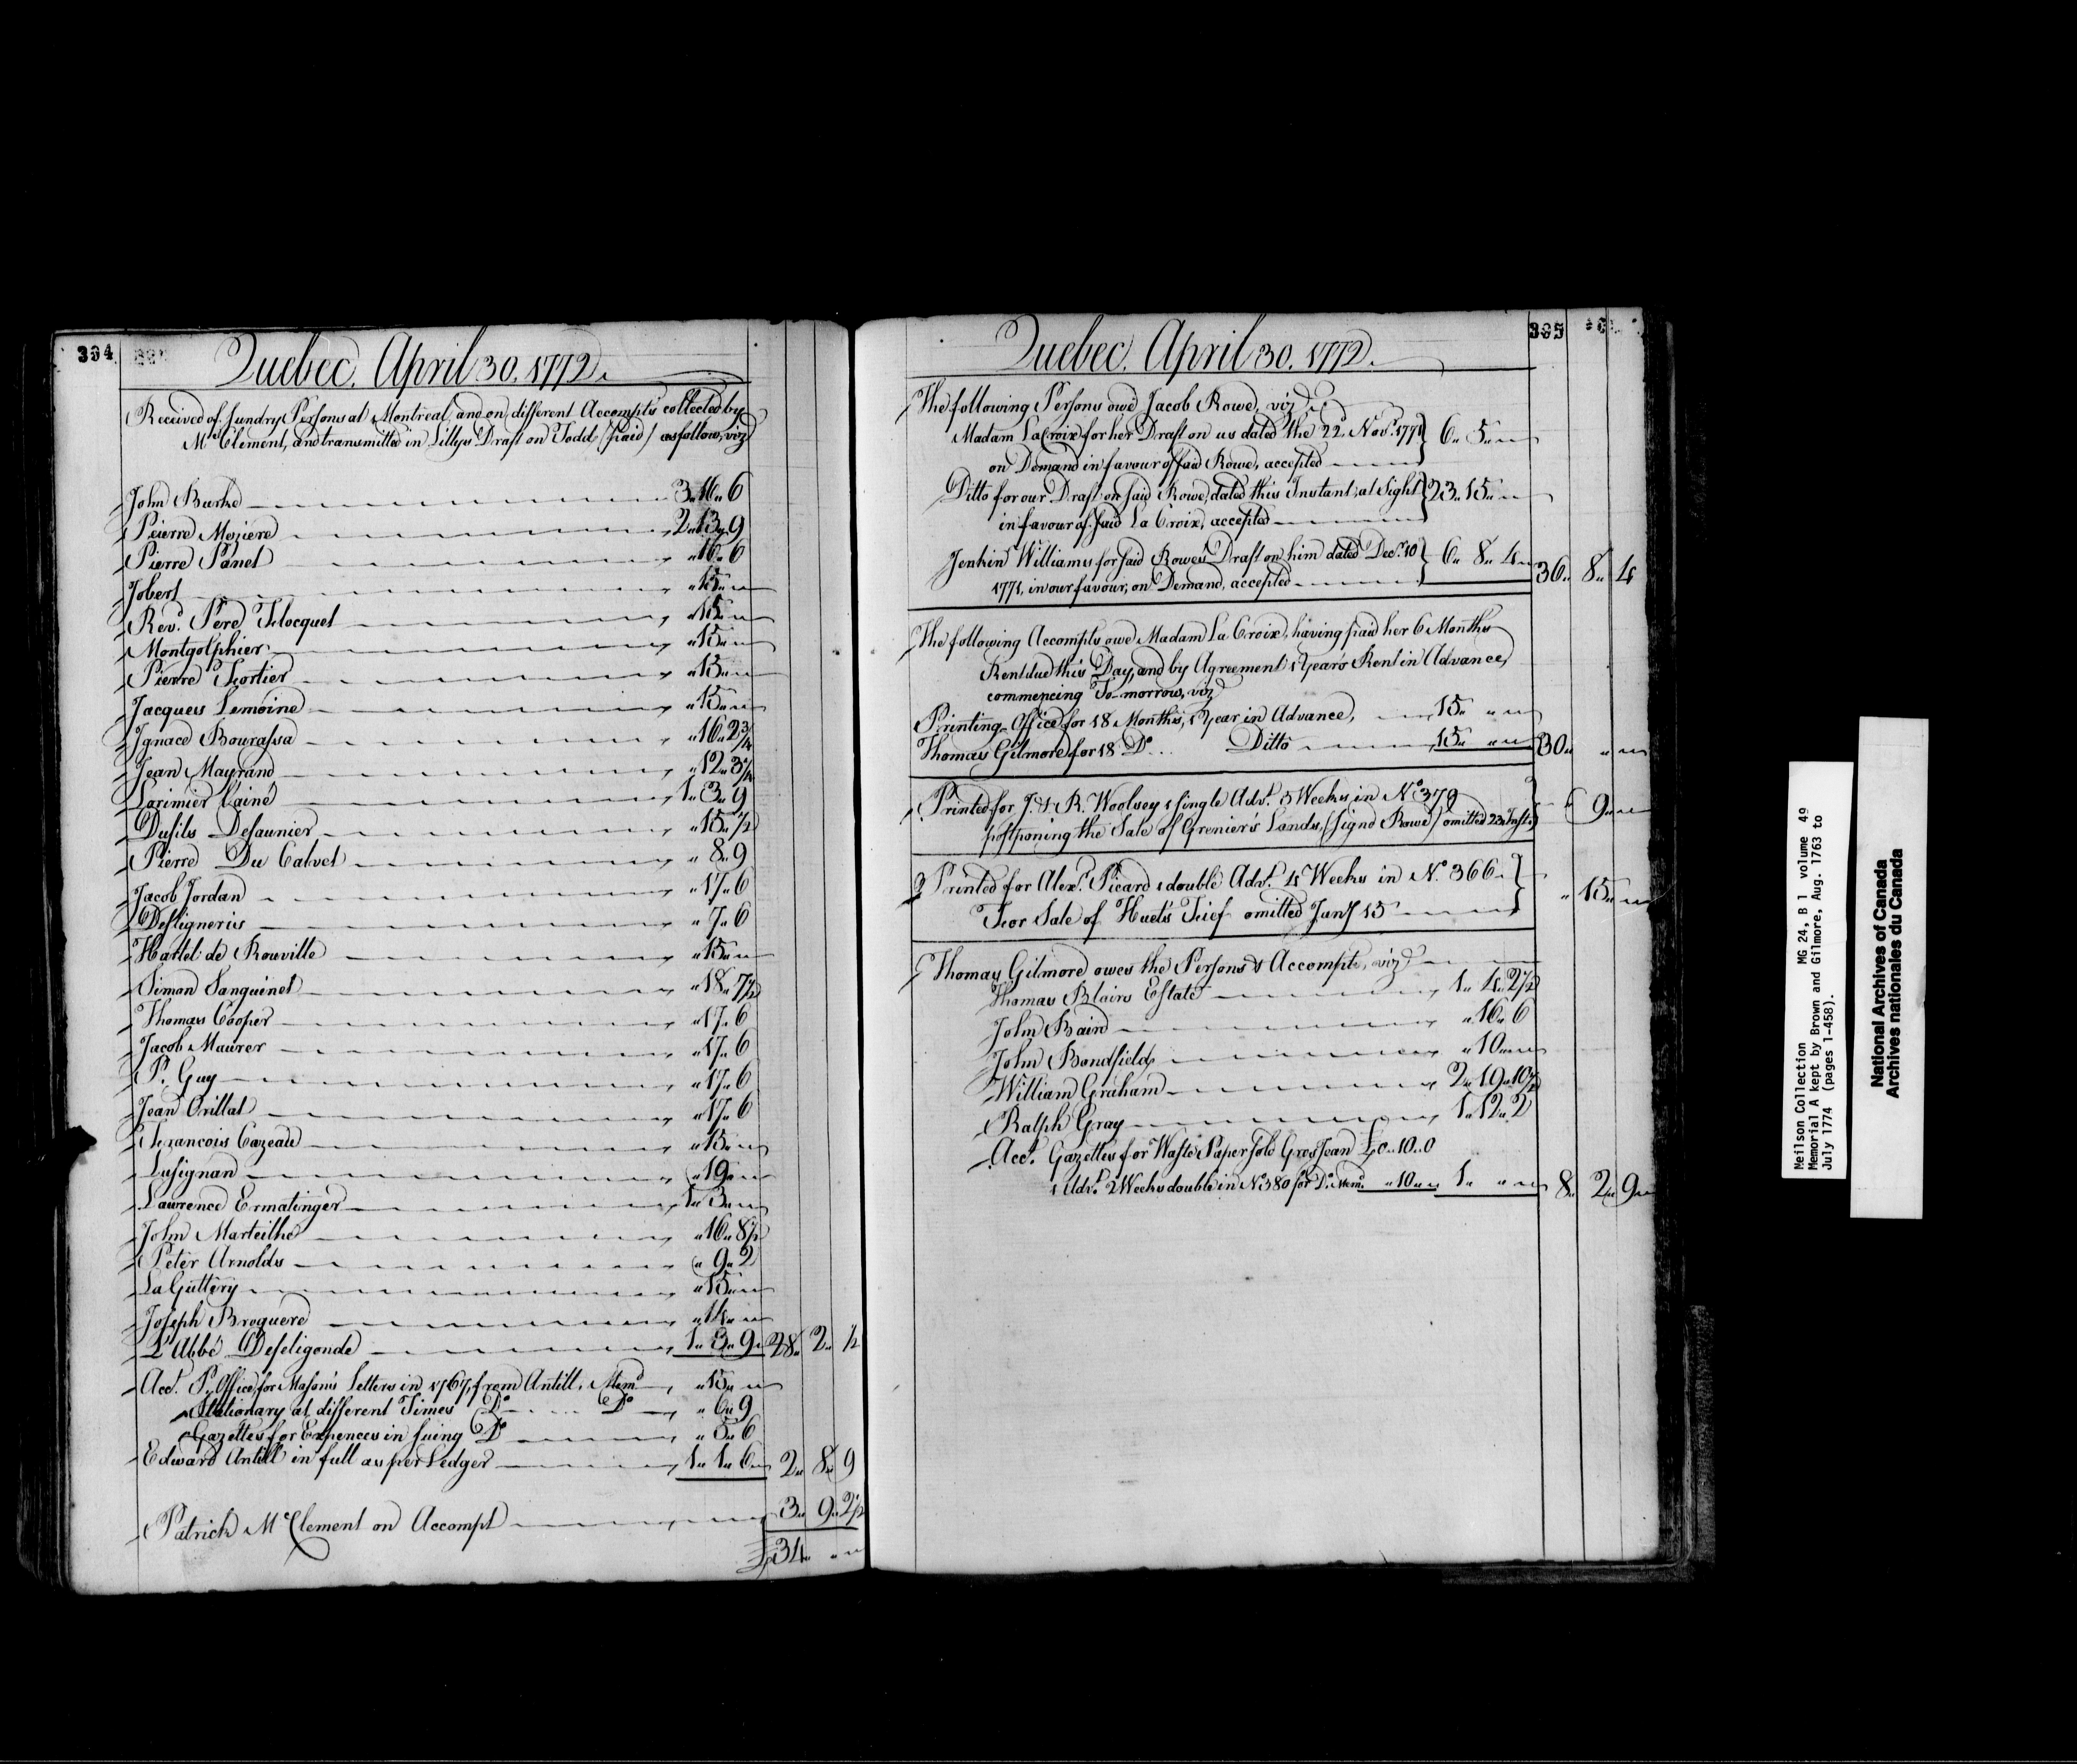 394
Quebec, April 30, 1772.
Received of Sundry Persons at Montreal, and on different Accompts collected by
Mr McClement, and transmitted in Lillys Draft on Todd (paid) as follow, viz
John Burke 3" 16" 6
Pierre Meziere 2" 13" 9
Pierre Panet " 16" 6
Jobert " 15" "
Revd. Pere Flocquet " 15" "
Montgolphier " 15" "
Pierre Fortier " 15" "
Jacques Lemoine " 15" "
Ignace Bourassa " 16" 2¾
Jean Mayrand " 12" 3¼
Lorimier l'ainé 1" 3" 9
Dufils Desaunier " 15" ½
Pierre Du Calvet " 8" 9
Jacob Jordan " 17" 6
Desligneris " 7" 6
Hartel de Rouville " 15" "
Simon Sanguinet " 18" 7½
Thomas Cooper " 17" 6
Jacob Maurer " 17" 6
P. Guy " 17" 6
Jean Orillat " 17" 6
Francois Cazeau " 15" "
Lusignan " 19" "
Lawrence Ermatinger 1" 3" "
John Marteilhe " 16" 8½
Peter Arnolds " 9" 2
La Guttery " 15" "
Joseph Broguere " 14" "
L'Abbé Deseligonde 1" 3" 9 28" 2" ½
Acct. P. Office for Mason's Letters in 1767, from Antill, Memd " 15" "
Stationary at different Times Do Do " 6" 9
Gazettes for Expences in suing Do " 5" 6
Edward Antill in full as per Ledger 1" 1" 6 2" 8" 9
Patrick McClement on Accompt 3" 9" 2½
£34" " "
395
Quebec, April 30, 1772.
The following Persons owe Jacob Rowe, viz
Madam LaCroix for her Draft on us dated the 22. Novr. 1771 } 6" 5" "
on Demand in favour of said Rowe, accepted
Ditto for our Draft on said Rowe, dated this Instant, at Sight } 23" 15" "
in favour of said La Croix, accepted
Jenkin Williams for said Rowe's Draft on him dated Decr. 10 } 6" 8" 4 36" 8" 4
1771, in our favour, on Demand, accepted
The following Accompts owe Madam La Croix, having paid her 6 Months
Rent due this Day, and by Agreement 1 Year's Rent in Advance,
commencing To-morrow, viz
Printing-Office for 18 Months, 1 Year in Advance, 15" " "
Thomas Gilmore for 18 Do. Ditto 15" " " 30" " "
Printed for J. & R. Woolsey 1 single Advt. 5 Weeks in No 379 } " 9" "
postponing the Sale of Grenier's Lands, (signd Rowe) omitted 23 Inst.
Printed for Alexr. Picard 1 double Advt. 4 Weeks in No. 366 } " 15" "
For Sale of Huet's Fief omitted Jany 15
Thomas Gilmore owes the Persons & Accompts, viz
Thomas Blairs Estate 1" 4" 2½
John Bain " 16" 6
John Bondfield " 10" "
William Graham 2" 19" 10½
Ralph Gray 1" 12" 2
Acct. Gazettes for Waste Paper sold Gros Jean £0" 10" 0
1 Advt. 2 Weeks double in No 380 for Do. Memd. " 10" " 1" " " 8" 2" 9
Neilson Collection MG 24, B 1 volume 49
Memorial A kept by Brown and Gilmore, Aug. 1763 to
July 1774 (pages 1-458).
National Archives of Canada
Archives nationales du Canada